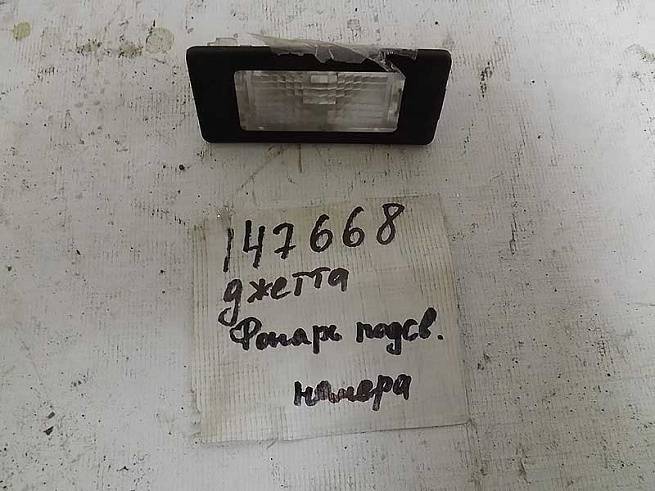 147668
джетта
Фонарь подсв.
номера